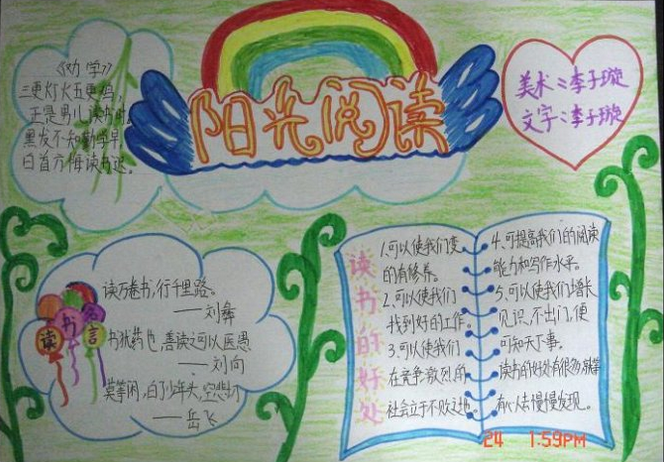 阳光阅读
《劝学》
三更灯火五更鸡,
正是男儿读书时。
黑发不知勤学早,
白首方悔读书迟。
美术:李子璇
文字:李子璇
读书名言
读万卷书,行千里路。
——刘彝
书犹药也,善读之可以医愚
——刘向
莫等闲,白了少年头,空悲切
——岳飞
读书的好处
1.可以使我们变
的有修养。
2.可以使我们
找到好的工作。
3.可以使我们
在竞争激烈的
社会立于不败之地。
4.可提高我们的阅读
能力和写作水平。
5.可以使我们增长
见识,不出门,便
可知天下事。
读书的好处有很多,就等
有心人去慢慢发现。
24 1:59PM